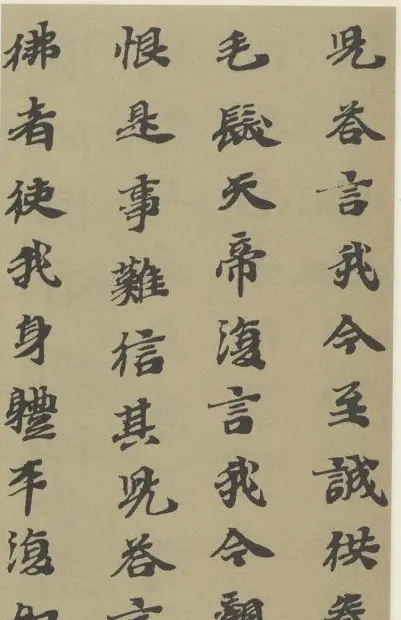 児荅言我今至誠供養
毛髮天帝復言我今觀
恨是事難信其児荅言
佛者使我身體平復如